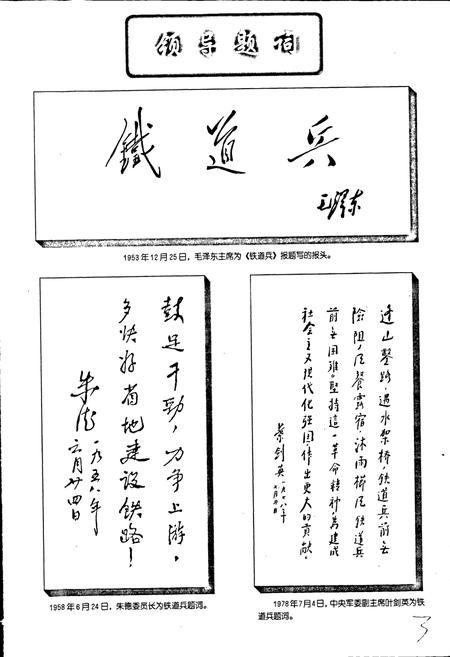 领导题词
鐵道兵
毛泽东
1953年12月25日，毛泽东主席为《铁道兵》报题写的报头。
鼓足干劲，力争上游，
多快好省地建设铁路！
朱德
一九五八年
六月廿四日
1958年6月24日，朱德委员长为铁道兵题词。
逢山凿路，遇水架桥，铁道兵前无
险阻；风餐露宿，沐雨栉风，铁道兵
前无困难。坚持这一革命精神，为建成
社会主义现代化强国作出更大的贡献。
叶剑英 一九七八年
七月四日
1978年7月4日，中央军委副主席叶剑英为铁
道兵题词。
3